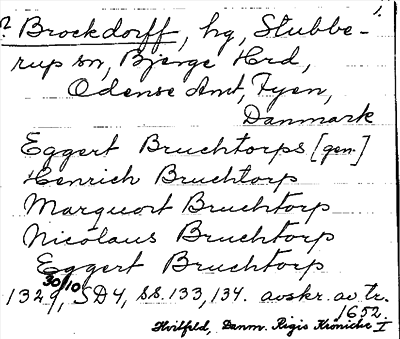 1.
? Brockdorff, hg, Stubbe-
rup sn, Bjerge Hrd,
Odense Amt, Fyen,
Danmark
Eggert Bruchtorps [gen.]
Henrich Bruchtorp
Marquort Bruchtorp
Nicolaus Bruchtorp
Eggert Bruchtorp
1329 30/10, SD4, ss. 133, 134. avskr. av tr.
1652.
Hvitfeld, Danm. Rigis Krönicke I